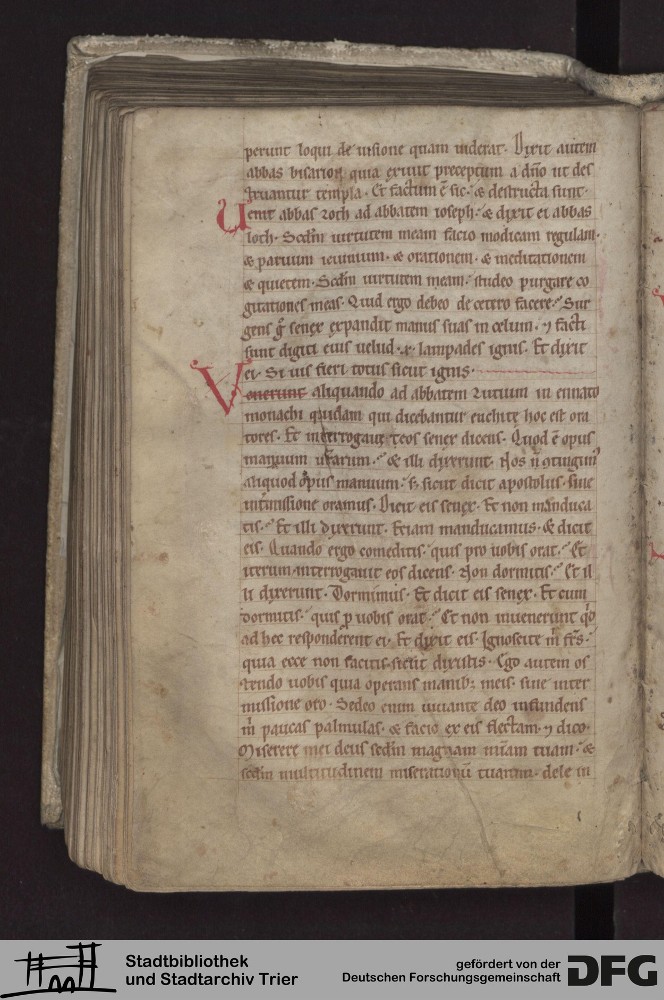 perunt loqui de uisione quam uiderat. Dixit autem
abbas bisarion quia exiuit preceptum a dño ut des
truantur templa. Et factum ē sic. & destructa sunt.
Uenit abbas loth ad abbatem ioseph. & dixit ei abbas
loth. Scdm uirtutem meam facio modicam regulam.
& paruum ieiunium. & orationem. & meditationem
& quietem. Scdm uirtutem meam. studeo purgare co
gitationes meas. Quid ergo debeo de cetero facere. Sur
gens g senex expandit manus suas in celum. ⁊ facti
sunt digiti eius uelud .x. lampades ignis. Et dixit
ei. Si uis fieri totus sicut ignis.
Venerunt aliquando ad abbatem Lutium in ennato
monachi quidam qui dicebantur euchite hoc est ora
tores. Et interrogauit eos senex dicens. Quod ē opus
manuum urarum. & illi dixerunt. Nos n ꝯtingim
aliquod opus manuum. s; sicut dicit apostolus. sine
intmissione oramus. Dicit eis senex. Et non manduca
tis. Et illi dixerunt. Etiam manducamus. & dicit
eis. Quando ergo comeditis. quis pro uobis orat. Et
iterum interrogauit eos dicens. Non dormitis. Et il
li dixerunt. Dormimus. Et dicit eis senex. Et cum
dormitis. quis ꝓ uobis orat. Et non inuenerunt qd
ad hec responderent ei. Et dixit eis. Ignoscite m frs.
quia ecce non facitis sicut dixistis. Ego autem os
tendo uobis quia operans manib; meis. sine inter
missione oro. Sedeo enim iuuante deo infundens
m paucas palmulas. & facio ex eis flectam. ⁊ dico.
Miserere mei deus scdm magnam miam tuam. &
scdm multitudinem miserationū tuarum. dele in
Stadtbibliothek
und Stadtarchiv Trier
gefördert von der
Deutschen Forschungsgemeinschaft
DFG